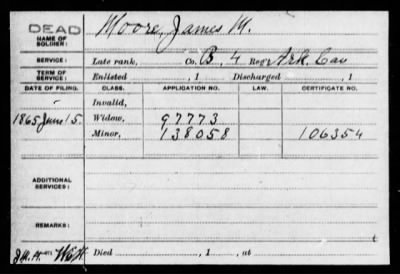 DEAD
NAME OF SOLDIER: Moore, James M.
SERVICE: Late rank, Co. B, 4 Reg't Ark Cav
TERM OF SERVICE: Enlisted , 1 Discharged , 1
DATE OF FILING. CLASS. APPLICATION NO. LAW. CERTIFICATE NO.
Invalid,
1865 June 15. Widow, 97773
Minor, 138058 106354
ADDITIONAL SERVICES:
REMARKS:
Died , 1 , at